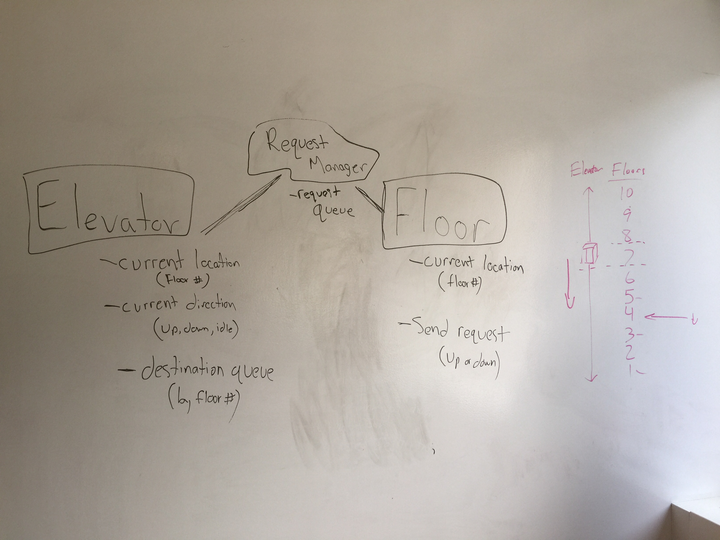 Request
Manager
-request
queue
Elevator
-current location
(Floor #)
-current direction
(Up, down, idle)
- destination queue
(by floor #)
Floor
-current location
(floor #)
-Send request
(Up or down)
Elevator Floors
10
9
8
7
6
5-
4
3-
2
1-